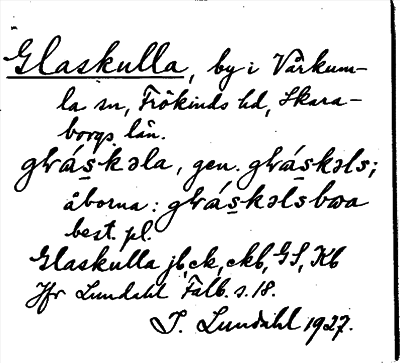 Glaskulla, by i Vårkum-
la sn, Frökinds hd, Skara-
borgs län.
gƚrás̱kəla, gen. gƚrás̱kəls;
åborna: gƚrás̱kəlsbɷa
best. pl.
Glaskulla jb, ck, ckb, GS, Kb
Jfr Lundahl Falb. s. 18.
I. Lundahl 1927.